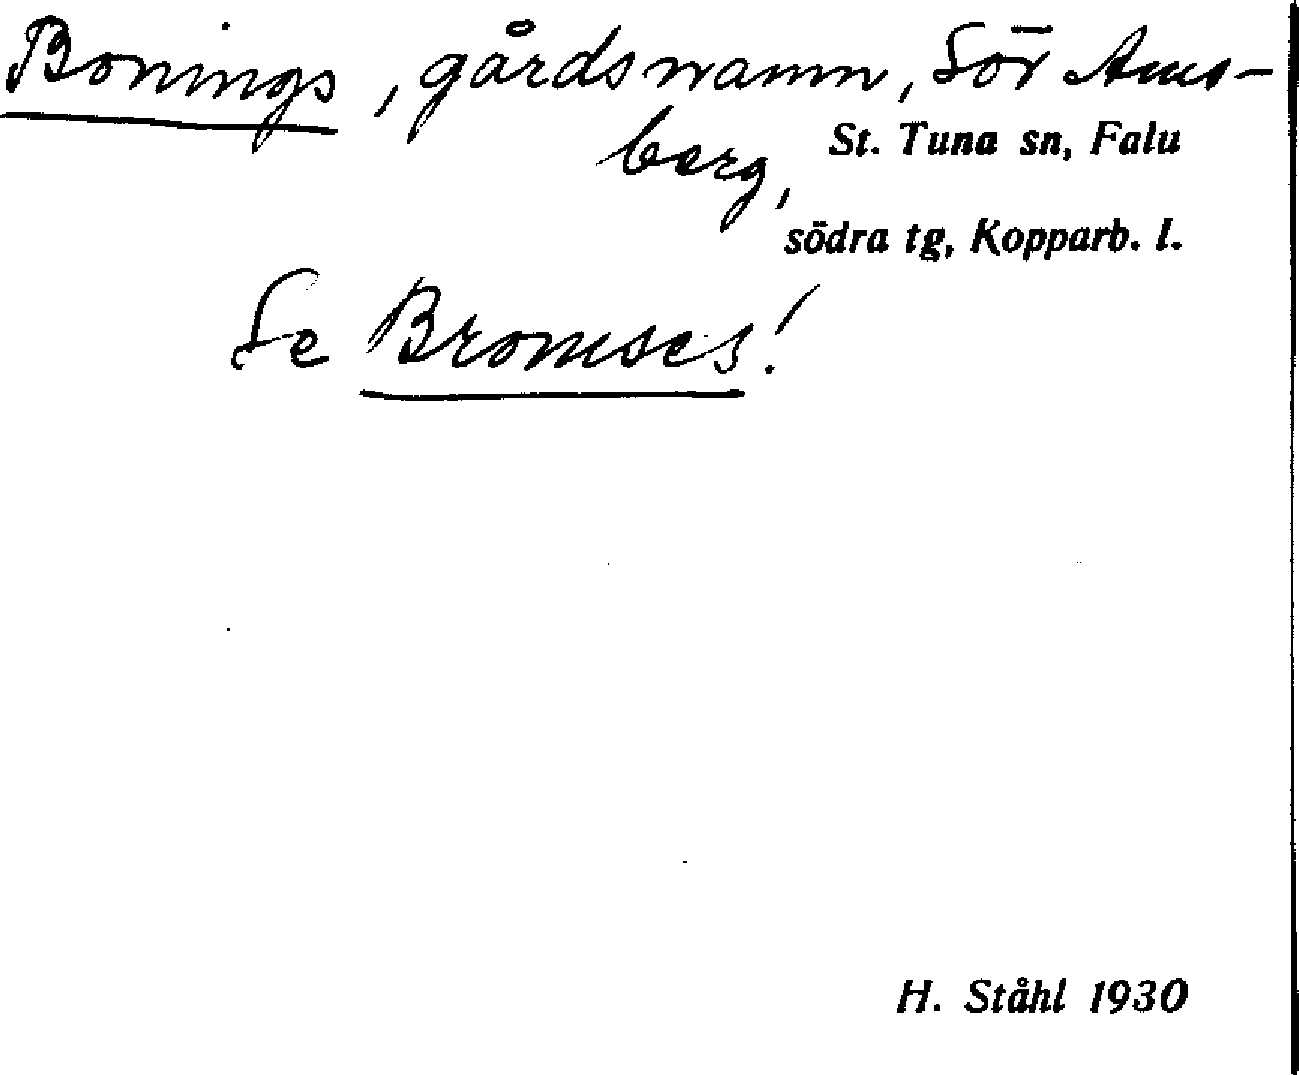 Bonings, gårdsnamn, Sör Ams-
berg, St. Tuna sn, Falu
södra tg, Kopparb. l.
Se Bromses!
H. Ståhl 1930